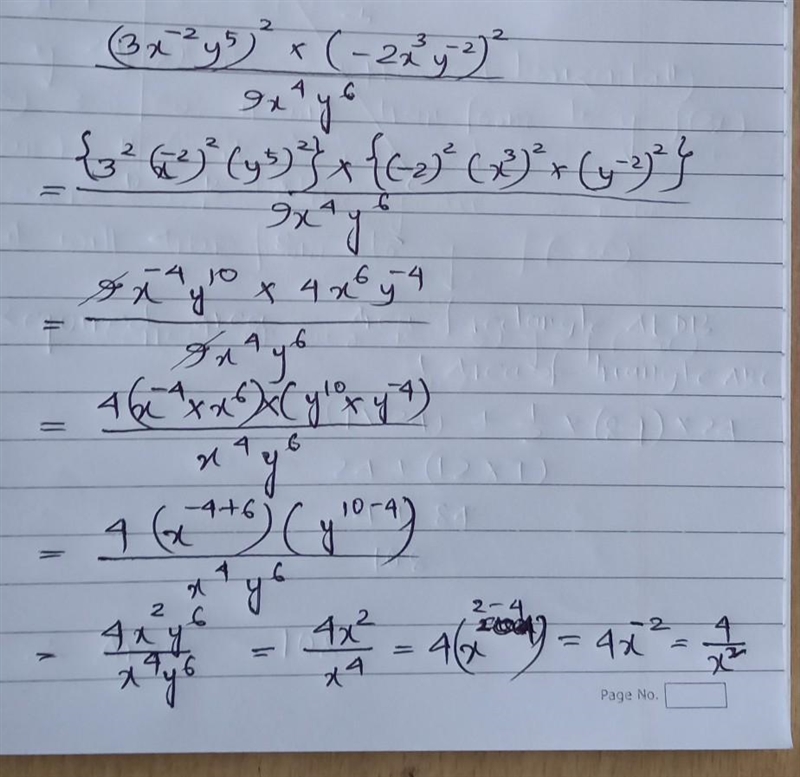 (3x⁻²y⁵)² × (-2x³y⁻²)² / 9x⁴y⁶
= {3² (x⁻²)² (y⁵)²} × {(-2)² (x³)² × (y⁻²)²} / 9x⁴y⁶
= 9x⁻⁴y¹⁰ × 4x⁶y⁻⁴ / 9x⁴y⁶
= 4(x⁻⁴ × x⁶) × (y¹⁰ × y⁻⁴) / x⁴y⁶
= 4 (x⁻⁴⁺⁶) (y¹⁰⁻⁴) / x⁴y⁶
= 4x²y⁶ / x⁴y⁶ = 4x² / x⁴ = 4(x²⁻⁴) = 4x⁻² = 4 / x²
Page No.